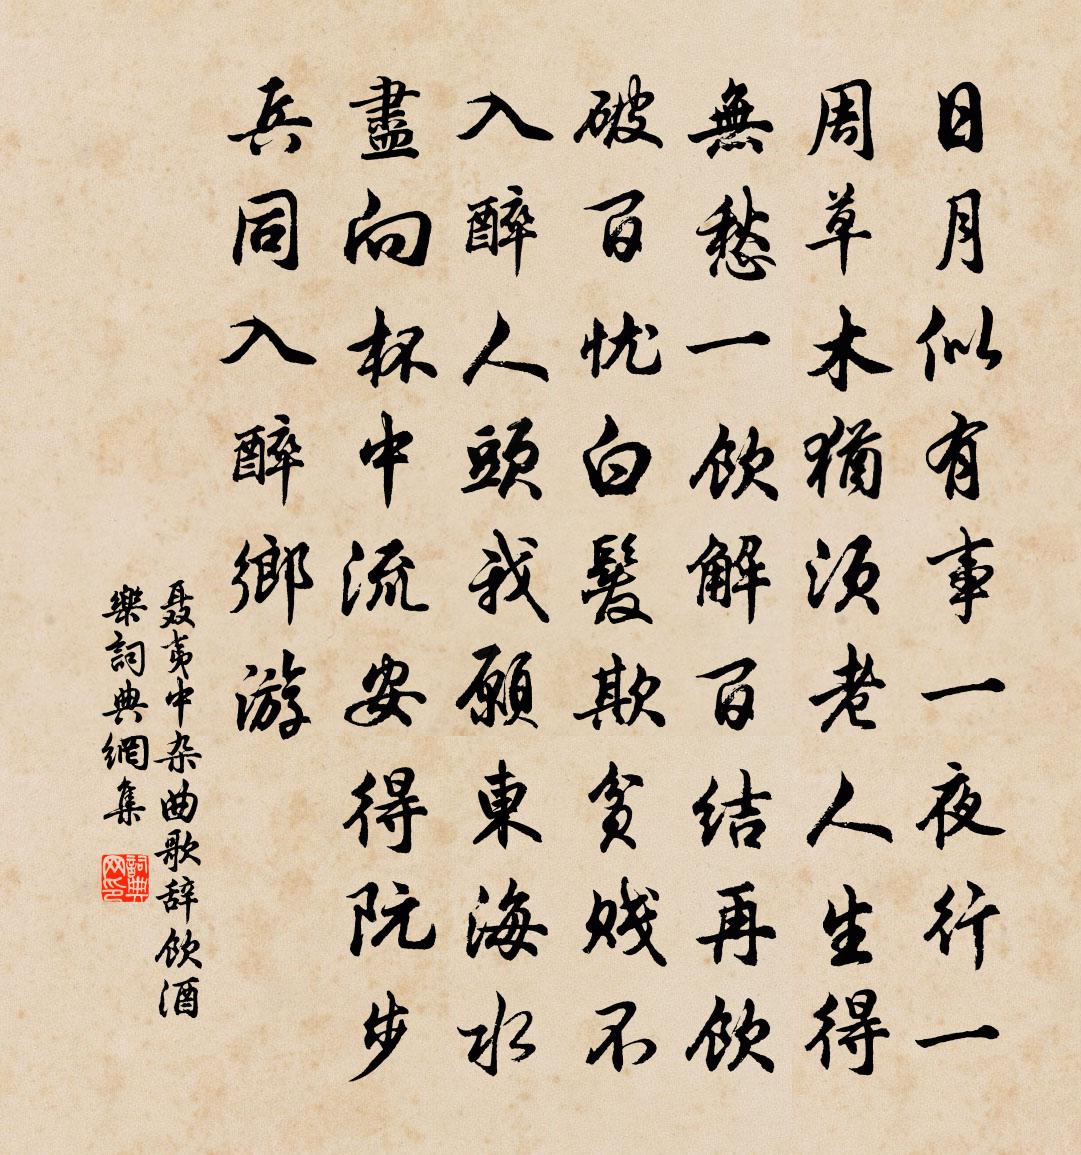 日月似有事一夜行一
周草木猶須老人生得
無愁一飲解百結再飲
破百憂白髮欺貧賤不
入醉人頭我願東海水
盡向杯中流安得阮步
兵同入醉鄉游
聶夷中杂曲歌辞飲酒
樂詞典網集
詞典网印